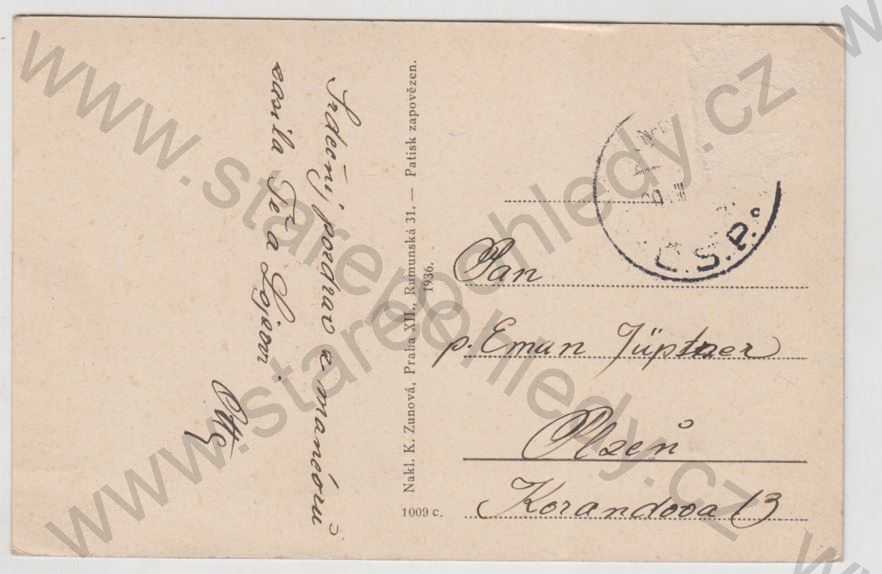 Srdečný pozdrav z manévrů
zasílá Tě a
Nakl. K. Zunová, Praha XII., Rumunská 31. — Patisk zapovězen.
1936.
1009 c.
C.S.P.
Pan
p. Eman Jüptner
Plzeň
Korandova 13
www.starepohledy.cz
www.starepohledy.cz
www.starepohledy.cz